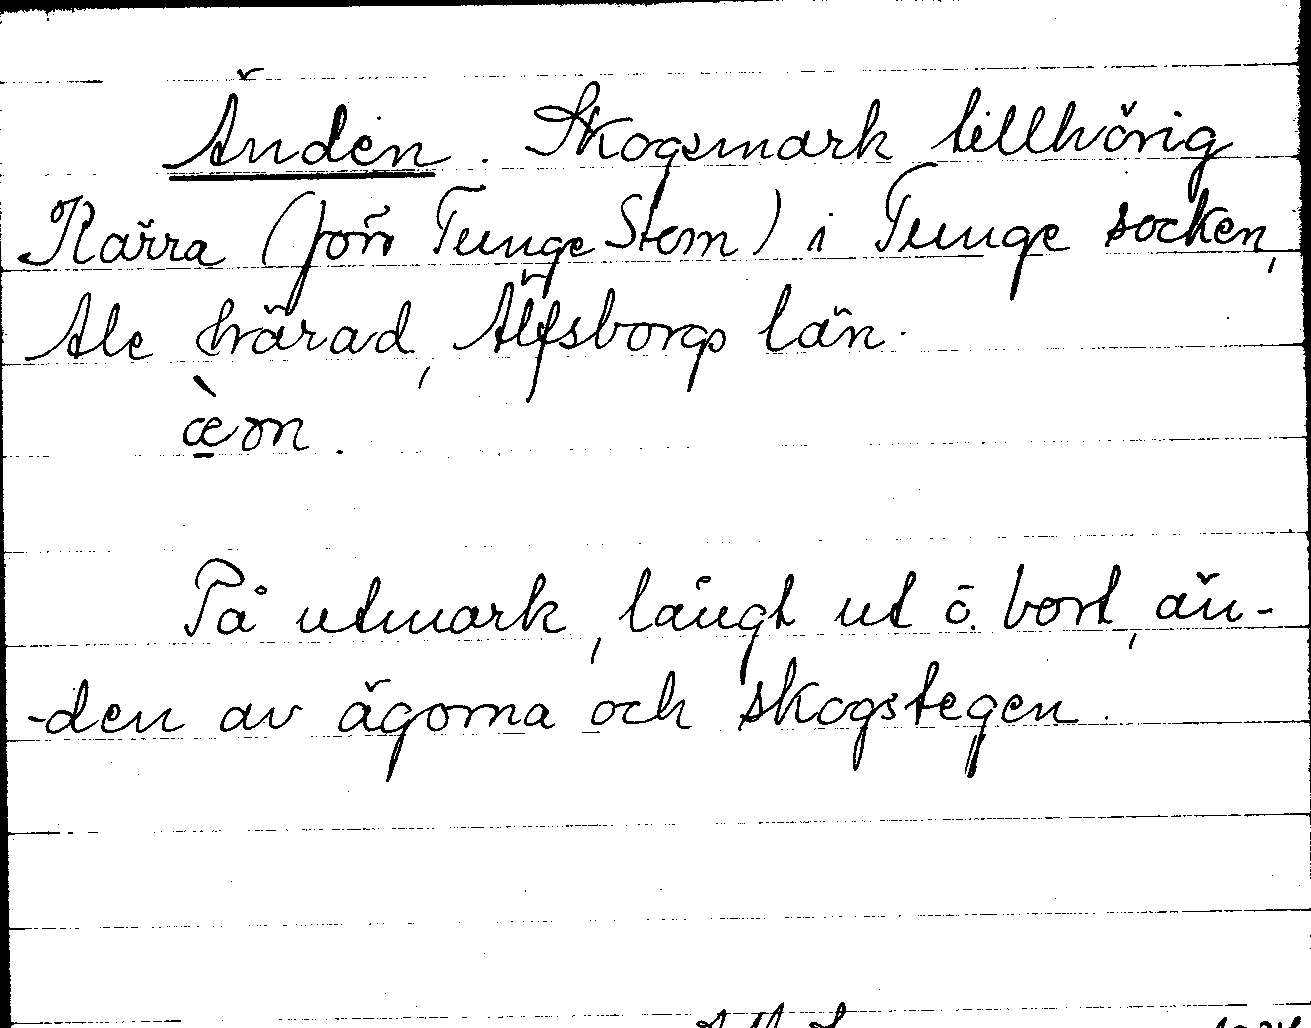 Änden. Skogsmark tillhörig
Kärra (förr Tunge Stom) i Tunge socken,
Ale härad, Älfsborgs län.
æ̱̀ɷn.
På utmark, längt ut ö. bort, än-
-den av ägorna och skogstegen.